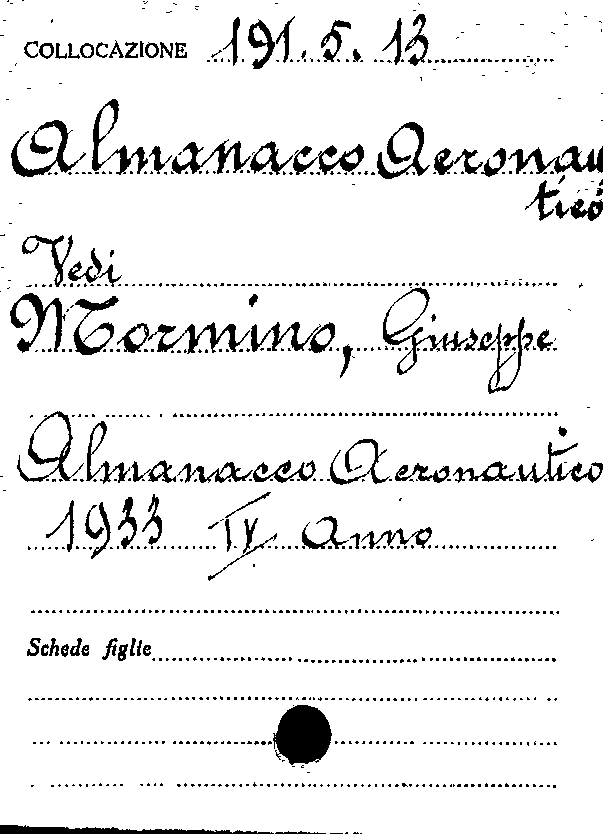 COLLOCAZIONE 191.5.13
Almanacco Aeronau
tico
Vedi
Mormino, Giuseppe
Almanacco Aeronautico
1933 IV Anno
Schede figlie